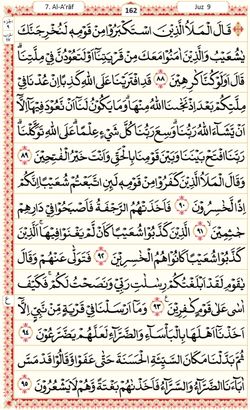 7. Al-A'rāf 162 Juz 9
قَالَ الْمَلَاُ الَّذِيْنَ اسْتَكْبَرُوْا مِنْ قَوْمِهٖ لَنُخْرِجَنَّكَ
يٰشُعَيْبُ وَالَّذِيْنَ اٰمَنُوْا مَعَكَ مِنْ قَرْيَتِنَآ اَوْ لَتَعُوْدُنَّ فِيْ مِلَّتِنَا
قَالَ اَوَلَوْ كُنَّا كٰرِهِيْنَ ٨٨ قَدِ افْتَرَيْنَا عَلَى اللّٰهِ كَذِبًا اِنْ عُدْنَا فِيْ
مِلَّتِكُمْ بَعْدَ اِذْ نَجّٰىنَا اللّٰهُ مِنْهَا وَمَا يَكُوْنُ لَنَآ اَنْ نَّعُوْدَ فِيْهَآ اِلَّآ
اَنْ يَّشَآءَ اللّٰهُ رَبُّنَا وَسِعَ رَبُّنَا كُلَّ شَيْءٍ عِلْمًا عَلَى اللّٰهِ تَوَكَّلْنَا
رَبَّنَا افْتَحْ بَيْنَنَا وَبَيْنَ قَوْمِنَا بِالْحَقِّ وَاَنْتَ خَيْرُ الْفٰتِحِيْنَ ٨٩
وَقَالَ الْمَلَاُ الَّذِيْنَ كَفَرُوْا مِنْ قَوْمِهٖ لَىِٕنِ اتَّبَعْتُمْ شُعَيْبًا اِنَّكُمْ
اِذًا لَّخٰسِرُوْنَ ٩٠ فَاَخَذَتْهُمُ الرَّجْفَةُ فَاَصْبَحُوْا فِيْ دَارِهِمْ
جٰثِمِيْنَ ٩١ الَّذِيْنَ كَذَّبُوْا شُعَيْبًا كَاَنْ لَّمْ يَغْنَوْا فِيْهَا اَلَّذِيْنَ
كَذَّبُوْا شُعَيْبًا كَانُوْا هُمُ الْخٰسِرِيْنَ ٩٢ فَتَوَلّٰى عَنْهُمْ وَقَالَ
يٰقَوْمِ لَقَدْ اَبْلَغْتُكُمْ رِسٰلٰتِ رَبِّيْ وَنَصَحْتُ لَكُمْ فَكَيْفَ
اٰسٰى عَلٰى قَوْمٍ كٰفِرِيْنَ ٩٣ وَمَآ اَرْسَلْنَا فِيْ قَرْيَةٍ مِّنْ نَّبِيٍّ اِلَّآ
اَخَذْنَآ اَهْلَهَا بِالْبَأْسَآءِ وَالضَّرَّآءِ لَعَلَّهُمْ يَضَّرَّعُوْنَ ٩٤
ثُمَّ بَدَّلْنَا مَكَانَ السَّيِّئَةِ الْحَسَنَةَ حَتّٰى عَفَوْا وَّقَالُوْا قَدْ مَسَّ
اٰبَآءَنَا الضَّرَّآءُ وَالسَّرَّآءُ فَاَخَذْنٰهُمْ بَغْتَةً وَّهُمْ لَا يَشْعُرُوْنَ ٩٥